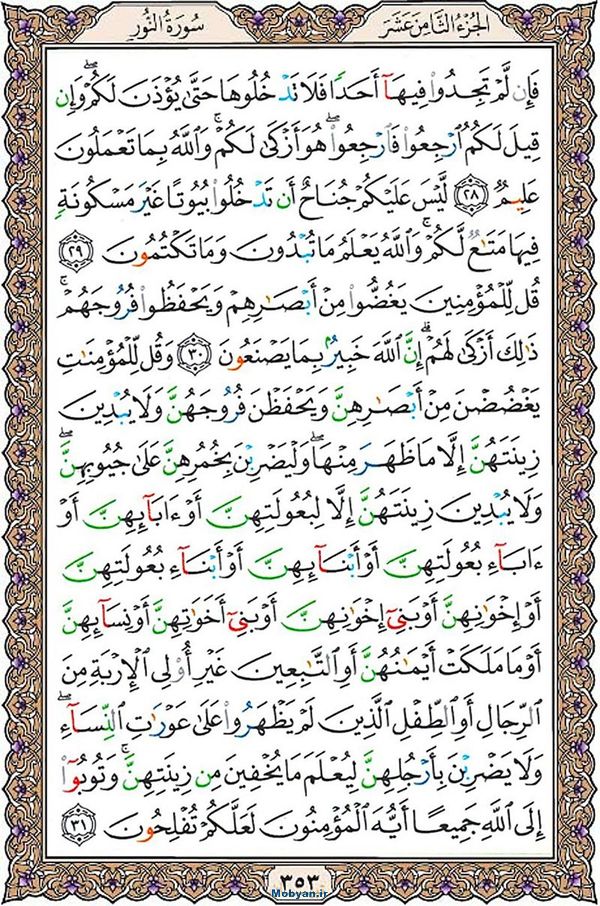 الجزء الثامن عشر
سورة النور
فَإِن لَّمْ تَجِدُوا۟ فِيهَآ أَحَدًا فَلَا تَدْخُلُوهَا حَتَّىٰ يُؤْذَنَ لَكُمْ ۖ وَإِن
قِيلَ لَكُمُ ٱرْجِعُوا۟ فَٱرْجِعُوا۟ ۖ هُوَ أَزْكَىٰ لَكُمْ ۚ وَٱللَّهُ بِمَا تَعْمَلُونَ
عَلِيمٌ ﴿٢٨﴾ لَّيْسَ عَلَيْكُمْ جُنَاحٌ أَن تَدْخُلُوا۟ بُيُوتًا غَيْرَ مَسْكُونَةٍ
فِيهَا مَتَـٰعٌ لَّكُمْ ۚ وَٱللَّهُ يَعْلَمُ مَا تُبْدُونَ وَمَا تَكْتُمُونَ ﴿٢٩﴾
قُل لِّلْمُؤْمِنِينَ يَغُضُّوا۟ مِنْ أَبْصَـٰرِهِمْ وَيَحْفَظُوا۟ فُرُوجَهُمْ ۚ
ذَٰلِكَ أَزْكَىٰ لَهُمْ ۗ إِنَّ ٱللَّهَ خَبِيرٌۢ بِمَا يَصْنَعُونَ ﴿٣٠﴾ وَقُل لِّلْمُؤْمِنَـٰتِ
يَغْضُضْنَ مِنْ أَبْصَـٰرِهِنَّ وَيَحْفَظْنَ فُرُوجَهُنَّ وَلَا يُبْدِينَ
زِينَتَهُنَّ إِلَّا مَا ظَهَرَ مِنْهَا ۖ وَلْيَضْرِبْنَ بِخُمُرِهِنَّ عَلَىٰ جُيُوبِهِنَّ ۖ
وَلَا يُبْدِينَ زِينَتَهُنَّ إِلَّا لِبُعُولَتِهِنَّ أَوْ ءَابَآئِهِنَّ أَوْ
ءَابَآءِ بُعُولَتِهِنَّ أَوْ أَبْنَآئِهِنَّ أَوْ أَبْنَآءِ بُعُولَتِهِنَّ
أَوْ إِخْوَٰنِهِنَّ أَوْ بَنِىٓ إِخْوَٰنِهِنَّ أَوْ بَنِىٓ أَخَوَٰتِهِنَّ أَوْ نِسَآئِهِنَّ
أَوْ مَا مَلَكَتْ أَيْمَـٰنُهُنَّ أَوِ ٱلتَّـٰبِعِينَ غَيْرِ أُو۟لِى ٱلْإِرْبَةِ مِنَ
ٱلرِّجَالِ أَوِ ٱلطِّفْلِ ٱلَّذِينَ لَمْ يَظْهَرُوا۟ عَلَىٰ عَوْرَٰتِ ٱلنِّسَآءِ ۖ
وَلَا يَضْرِبْنَ بِأَرْجُلِهِنَّ لِيُعْلَمَ مَا يُخْفِينَ مِن زِينَتِهِنَّ ۚ وَتُوبُوٓا۟
إِلَى ٱللَّهِ جَمِيعًا أَيُّهَ ٱلْمُؤْمِنُونَ لَعَلَّكُمْ تُفْلِحُونَ ﴿٣١﴾
٣٥٣
Mobyan.ir